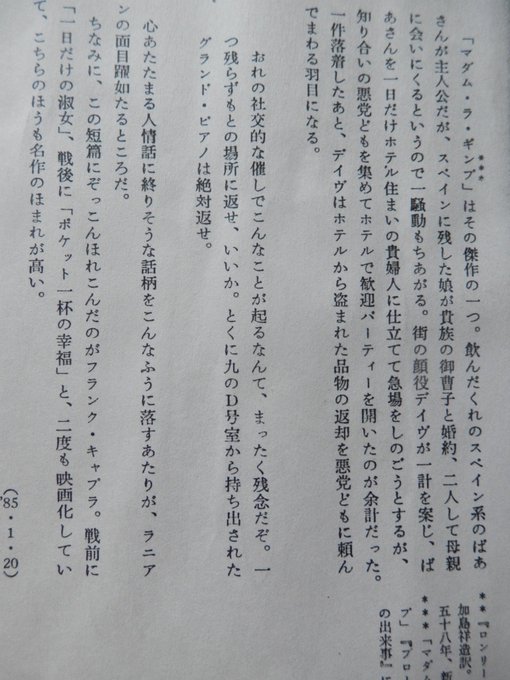 「マダム・ラ・ギンプ」はその傑作の一つ。飲んだくれのスペイン系のばあ
さんが主人公だが、スペインに残した娘が貴族の御曹子と婚約、二人して母親
に会いにくるというので一騒動もちあがる。街の顔役デイヴが一計を案じ、ば
あさんを一日だけホテル住まいの貴婦人に仕立てて急場をしのごうとするが、
知り合いの悪党どもを集めてホテルで歓迎パーティーを開いたのが余計だった。
一件落着したあと、デイヴはホテルから盗まれた品物の返却を悪党どもに頼ん
でまわる羽目になる。
おれの社交的な催しでこんなことが起るなんて、まったく残念だぞ。一
つ残らずもとの場所に返せ、いいか。とくに九のD号室から持ち出された
グランド・ピアノは絶対返せ。
心あたたまる人情話に終りそうな話柄をこんなふうに落すあたりが、ラニア
ンの面目躍如たるところだ。
ちなみに、この短篇にぞっこんほれこんだのがフランク・キャプラ。戦前に
「一日だけの淑女」、戦後に「ポケット一杯の幸福」と、二度も映画化してい
て、こちらのほうも名作のほまれが高い。
（'85・1・20）
***
**『ロンリー
加島祥造訳。
五十八年、新
***「マダム
プ」『ブロー
の出来事』に